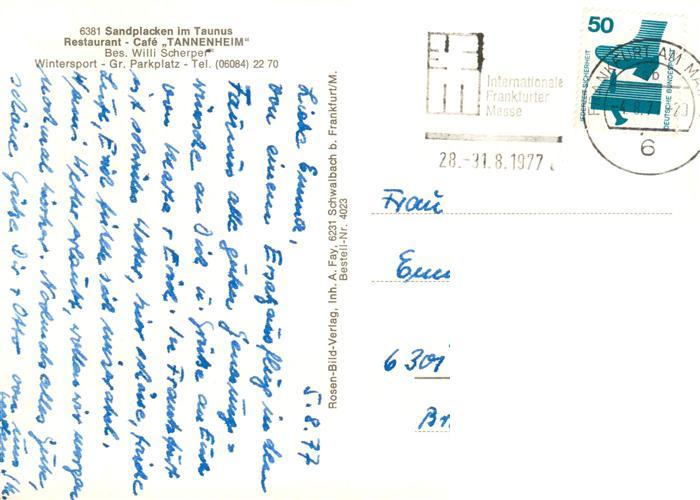 6381 Sandplacken im Taunus
Restaurant - Café „TANNENHEIM"
Bes. Willi Scherper
Wintersport - Gr. Parkplatz - Tel. (06084) 22 70
5.8.77
Liebe Emma,
von einem Ersatzausflug in den
Taunus alle guten Genesungs=
wünsche an Dich u. Grüße an Euch
von Martha + Erich. In Frankfurt
ist schwüles Wetter, hier schöne, frische
Luft, Erich fühlt sich
Wenn's Wetter erlaubt, wollen wir morgen
nochmal hierher. Nochmals alles Gute,
schöne Grüße Dir + Otto von uns
Rosen-Bild-Verlag, Inh. A. Fay, 6231 Schwalbach b. Frankfurt/M.
Bestell-Nr. 4023
Internationale
Frankfurter
Messe
28.-31.8.1977
50
JEDERZEIT SICHERHEIT
DEUTSCHE BUNDESPOST
FRANKFURT AM MA
b
6
Frau
Emm
6301
Br